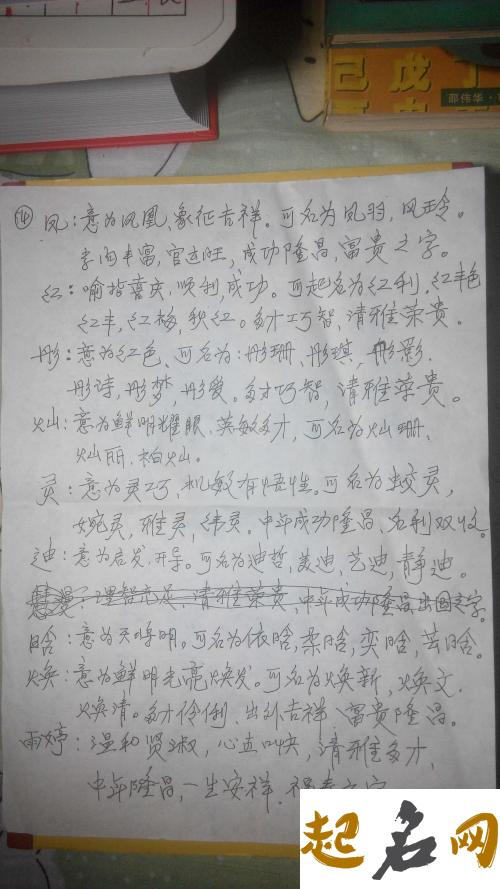 己戊丁
邵伟华
⑭ 凤：意为凤凰，象征吉祥。可名为凤羽，凤玲。
丰富，官运旺，成功隆昌，富贵之字。
红：喻指喜庆，顺利，成功。可起名为红利，红丰色
红丰，红梅，秋红。多才巧智，清雅荣贵。
彤：意为红色、可名为：彤珊、彤琪，彤影.
彤诗，彤梦，彤爱。多才巧智，清雅荣贵。
灿：意为鲜明耀眼、英敏多才，可名为灿珊、
灿丽、柏灿。
灵：意为灵巧、机敏有悟性。可名为姣灵，
婉灵，雅灵，纬灵。中年成功隆昌，名利双收。
迪：意为启发、开导。可名为迪哲，美迪，艺迪，静迪。
理智充足，清雅荣贵，中年成功隆昌出国之字。
晗：意为天将明。可名为依晗，柔晗，奕晗，芸晗。
焕：意为鲜明光亮焕发。可名为焕新，焕文.
焕清。多才伶俐、出外吉祥、富贵隆昌。
雨婷：温和贤淑，心直口快，清雅多才，
中年隆昌，一生安祥.福寿之字
起名网